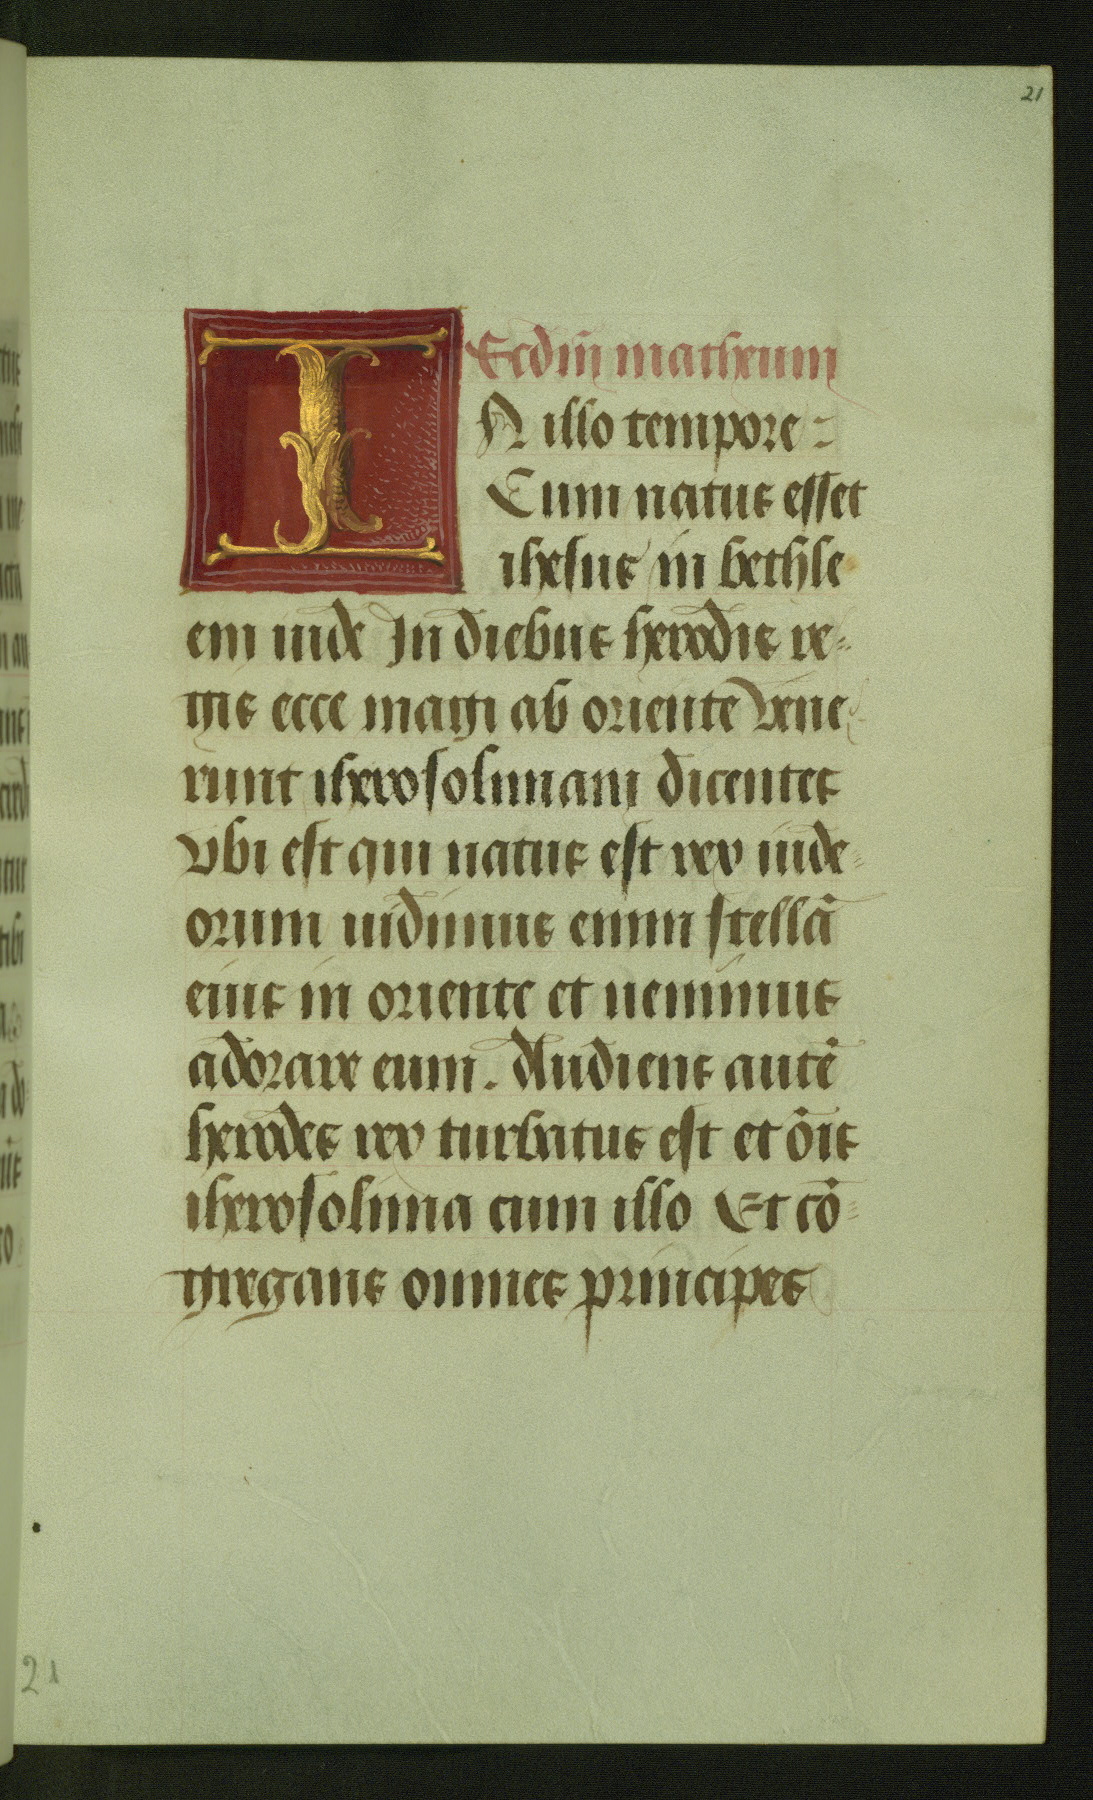 21
Scdm matheum
IN illo tempore
Cum natus esset
ihesus in bethle
em iude In diebus herodis re
gis ecce magi ab oriente vene
runt iherosolimam dicentes
Vbi est qui natus est rex iude
orum uidimus enim stellā
eius in oriente et uenimus
adorare eum. Audiens autē
herodes rex turbatus est et ōīs
iherosolima cum illo Et cō
gregans omnes principes
21